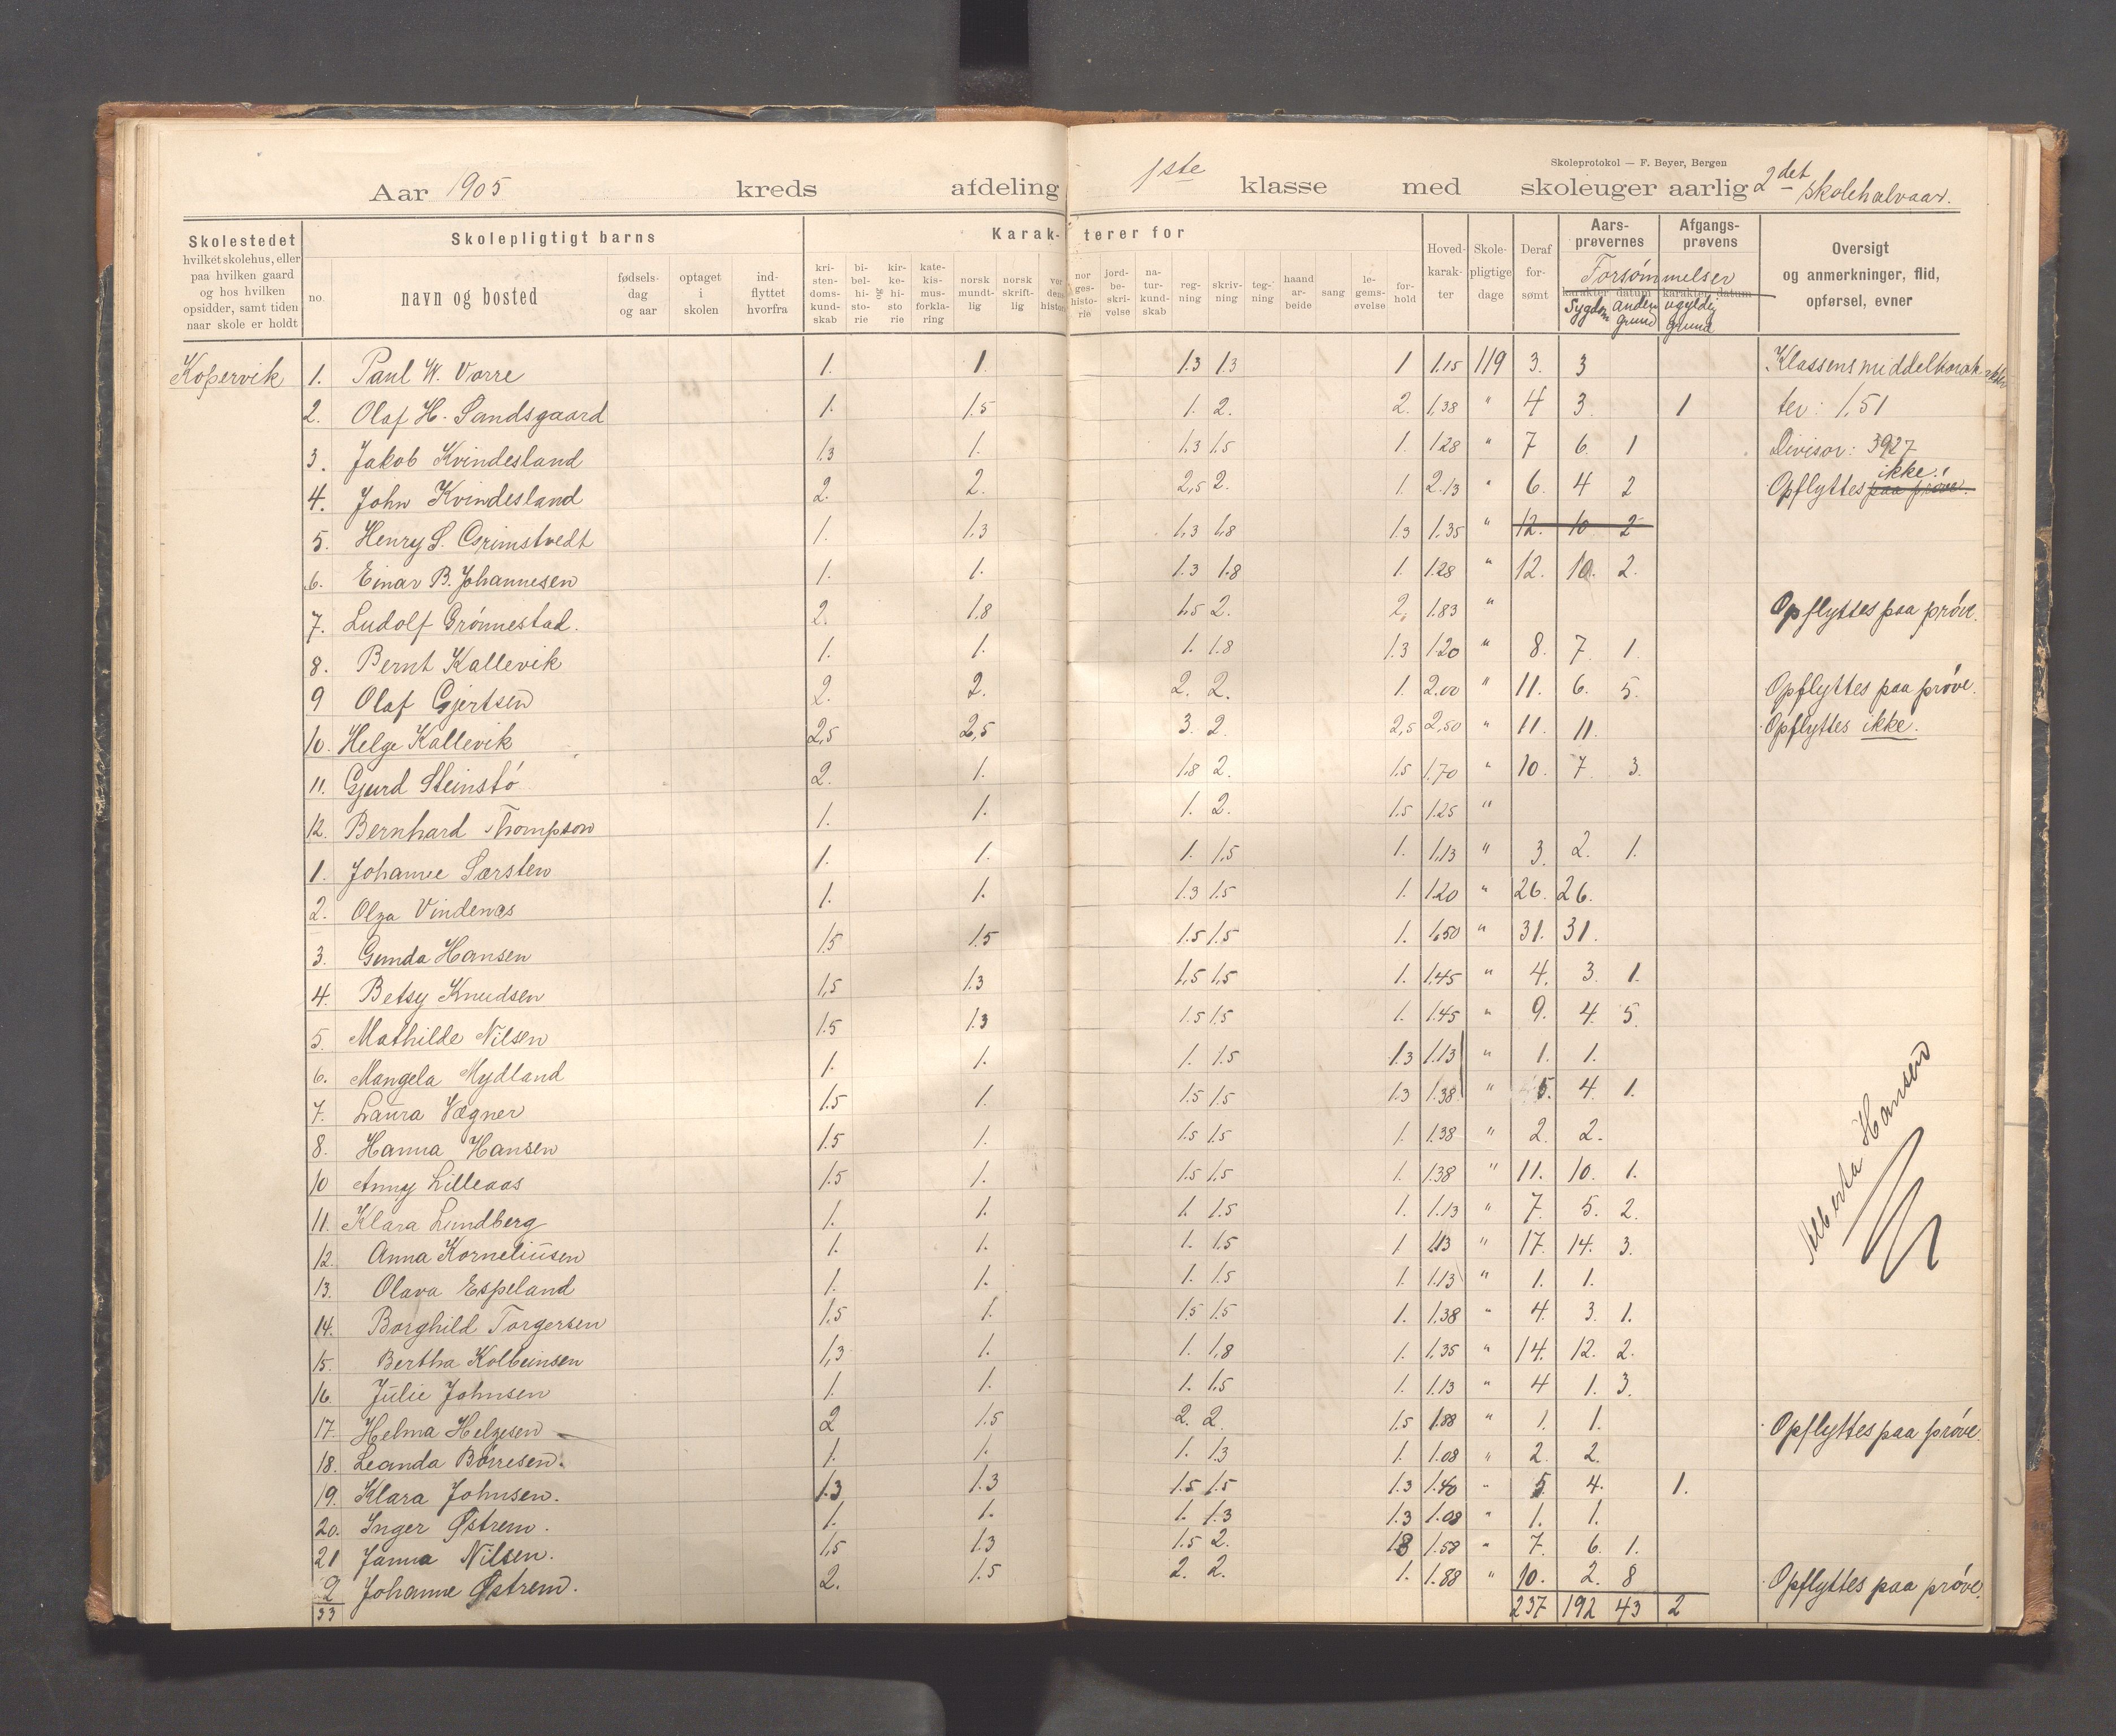 Skoleprotokol — F. Beyer, Bergen
Aar 1905 kreds afdeling 1ste klasse med skoleuger aarlig 2det skolehalvaar.
Skolestedet hvilket skolehus, eller paa hvilken gaard og hos hvilken opsidder, samt tiden naar skole er holdt
Skolepligtigt barns
no. navn og bosted fødsels-dag og aar optaget i skolen ind-flyttet hvorfra
Karak-terer for
kri-sten-doms-kund-skab bi-bel-hi-sto-rie og kir-ke-hi-sto-rie kate-kis-mus-forkla-ring norsk mundt-lig norsk skrift-lig ver dens histori nor ges-histo-rie jord-be-skri-velse na-tur-kund-skab reg-ning skriv-ning teg-ning haand ar-beide sang le-gems-øvelse for-hold
Hoved-karak-ter Skole-pligtige dage Deraf for-sømt Aars-prøvernes karakter datum Afgangs-prøvens karakter datum
Forsømmelser
Sygdom anden grund ugyldig grund
Oversigt og anmerkninger, flid, opførsel, evner
Kopervik 1. Paul W. Vorre 1. 1. 1.3 1.3 1 1.15 119 3. 3 Klassens middelkarak
2. Olaf H. Sandsgaard 1. 1.5 1. 2. 2. 1,38 " 4 3. 1 ter: 1,51
3. Jakob Kvindesland 1.3 1. 1.3 1.5 1. 1.28 " 7 6. 1 Divisor: 3927
4. John Kvindesland 2. 2. 2,5 2. 1. 2.13 " 6. 4 2 Opflyttes paa prøve. ikke!
5. Henry S. Grimstvedt 1. 1.3 1.3 1.8 1.3 1.35 " 12. 10 2
6. Einar B. Johannesen 1. 1. 1.3 1.8 1. 1.28 " 12. 10. 2.
7. Ludolf Grønnestad. 2. 1.8 1.5 2. 2. 1.83 " Opflyttes paa prøve.
8. Bernt Kallevik 1. 1. 1. 1.8 1.3 1.20 " 8. 7. 1.
9 Olaf Gjertsen 2. 2. 2. 2. 1. 2.00 " 11. 6. 5. Opflyttes paa prøve.
10. Helge Kallevik 2,5 2,5 3. 2. 2,5 2,50 " 11. 11. Opflyttes ikke.
11. Gjurd Steinstø 2. 1. 1.8 2. 1.5 1.70 " 10. 7. 3.
12. Bernhard Thompson 1. 1. 1. 2. 1.5 1.25 "
1. Johanne Sørsten 1. 1. 1. 1.5 1. 1.13 " 3. 2. 1.
2. Olga Vindenes 1. 1. 1.3 1.5 1. 1.20 " 26. 26.
3. Gunda Hansen 1.5 1.5 1.5 1.5 1. 1.50 " 31. 31.
4. Betsy Knudsen 1,5 1.3 1,5 1,5 1. 1.45 " 4. 3. 1.
5. Mathilde Nilsen 1.5 1.3 1.5 1.5 1. 1.45 " 9. 4. 5.
6. Mangela Mydland 1. 1. 1. 1.5 1.3 1.13 " 1. 1.
7. Laura Vægner 1.5 1. 1.5 1.5 1.3 1.38 " 5. 4. 1.
8. Hanna Hansen 1.5 1. 1.5 1.5 1. 1.38 " 2. 2.
10 Anny Lilleaas 1.5 1. 1.5 1.5 1. 1.38 " 11. 10. 1.
11. Klara Lundberg 1. 1. 1. 1.5 1. 1.13 " 7. 5. 2.
12. Anna Korneliusen 1. 1. 1. 1.5 1 1.13 " 17. 14. 3.
13. Olava Espeland 1. 1. 1. 1.5 1. 1.13 " 1. 1.
14. Borghild Torgersen 1,5 1. 1.5 1.5 1. 1.38 " 4. 3. 1.
15. Bertha Kolbeinsen 1,3 1. 1. 1,8 1. 1,35 " 14. 12. 2.
16. Julie Johnsen 1. 1. 1. 1.5 1. 1.13 " 4 1. 3.
17. Helma Helgesen 2 1.5 2. 2. 1.5 1.88 " 1. 1. Opflyttes paa prøve.
18. Leanda Børresen. 1. 1. 1. 1.3 1. 1.08 " 2. 2.
19. Klara Johnsen. 1.3 1.3 1.5 1.5 1.3 1.40 " 5. 4. 1.
20. Inger Østrem. 1. 1. 1. 1.3 1.3 1.08 " 1. 1.
21 Janna Nilsen. 1,5 1.3 1.5 2. 1.8 1.58 " 7. 6. 1.
9 Johanne Østrem. 2. 1.5 2. 2. 1. 1.88 " 10. 2. 8 Opflyttes paa prøve.
33 237 192 43 2
Alberta Hansen